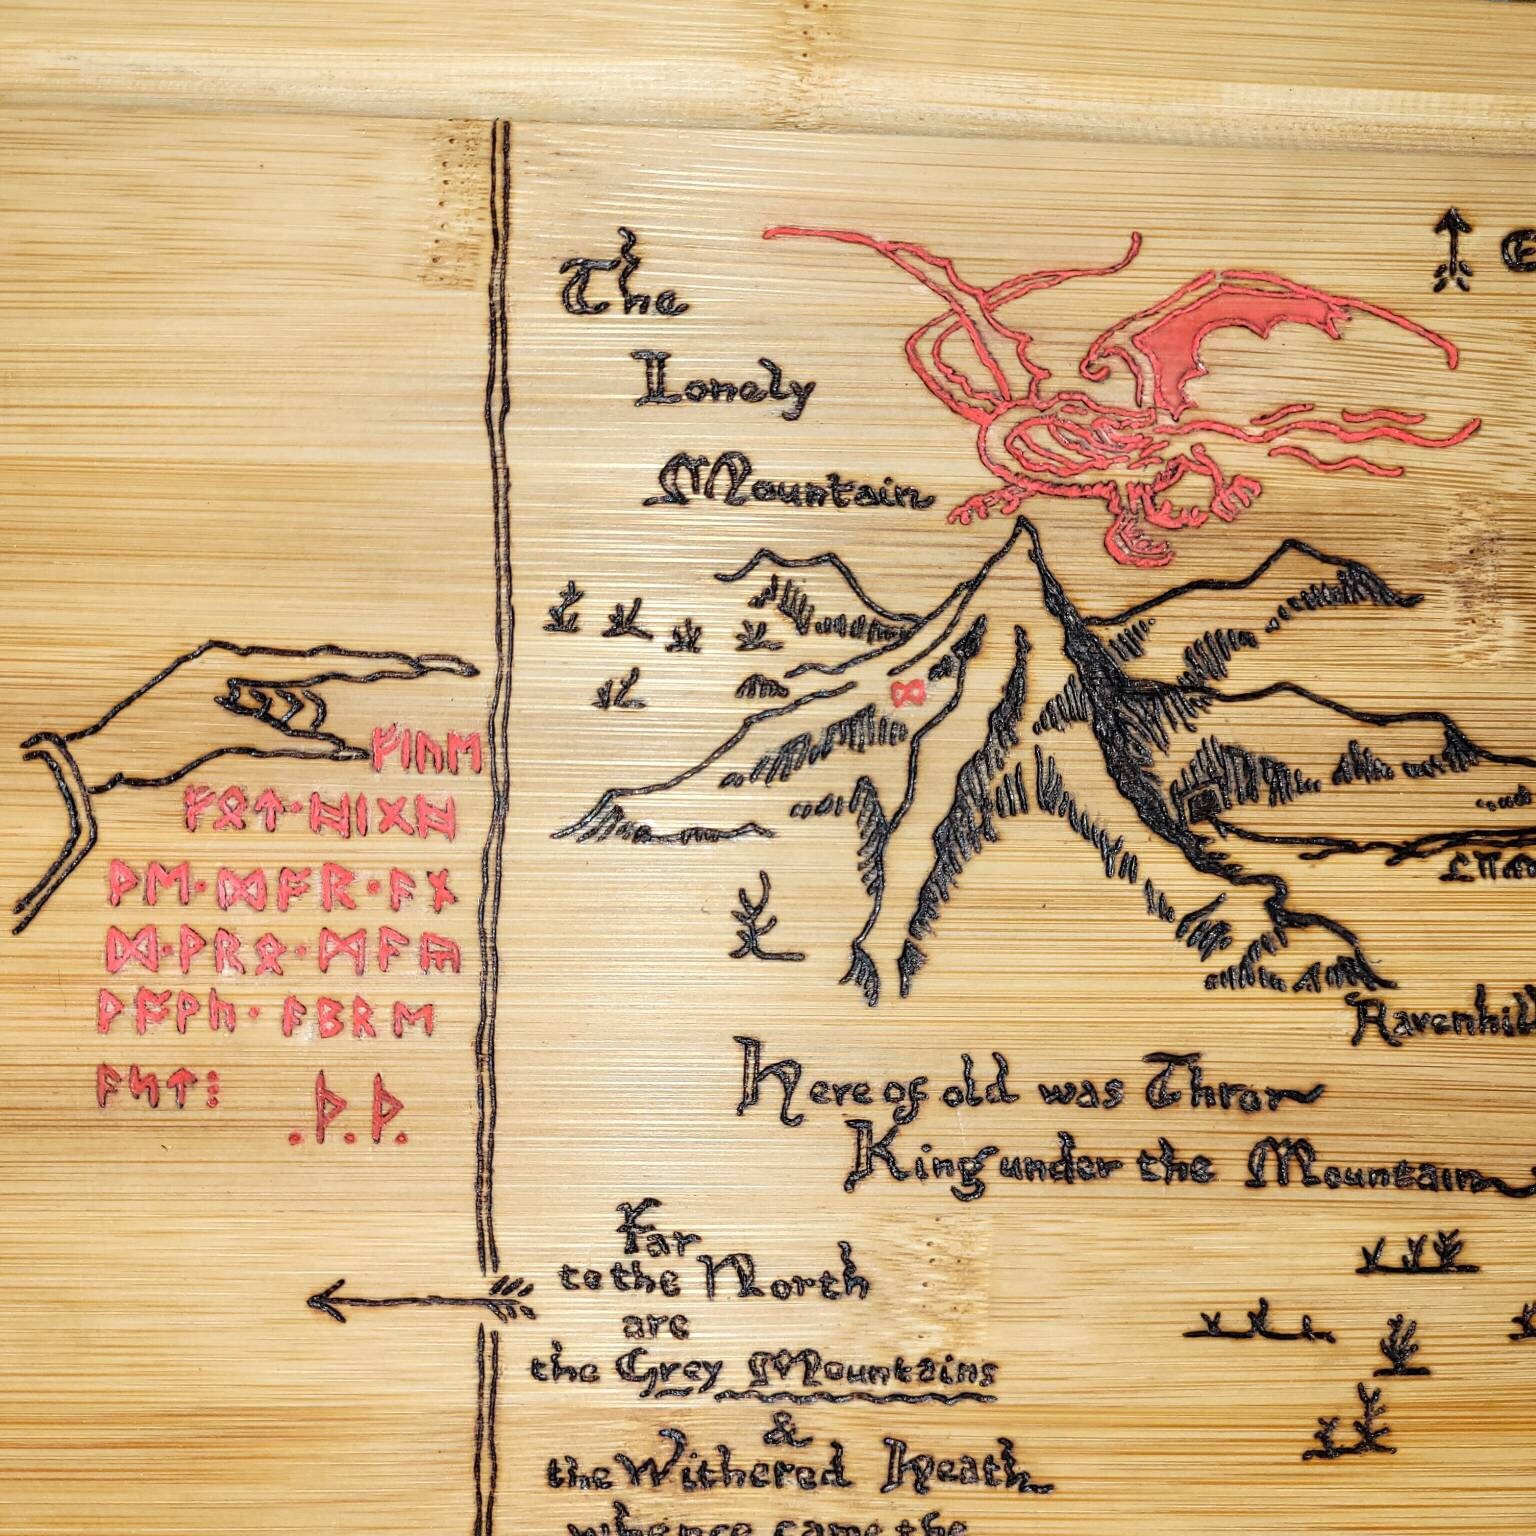 ᚠᛁᚢᛖ
ᚠᛟᛏ·ᚻᛁᚷᚻ
ᚦᛖ·ᛞᚩᚱ·ᚪᚾ
ᛞ·ᚦᚱᛟ·ᛗᚪᚣ
ᚪᛒᚱᛖ
ᚪᛋᛏ⁝ .ᚦ.ᚦ.
The
Lonely
Mountain
ᛞ
Ravenhill
Here of old was Thror
King under the Mountain
Far
to the North
are
the Grey Mountains
&
the Withered Heath
whence came the